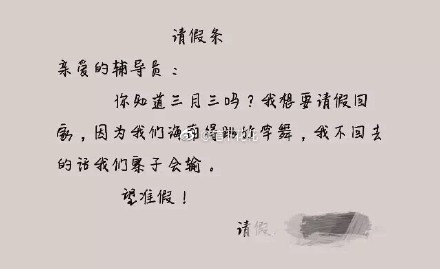 请假条
亲爱的辅导员：
你知道三月三吗？我想要请假回
家，因为我们海南得跳竹竿舞，我不回去
的话我们寨子会输。
望准假！
请假